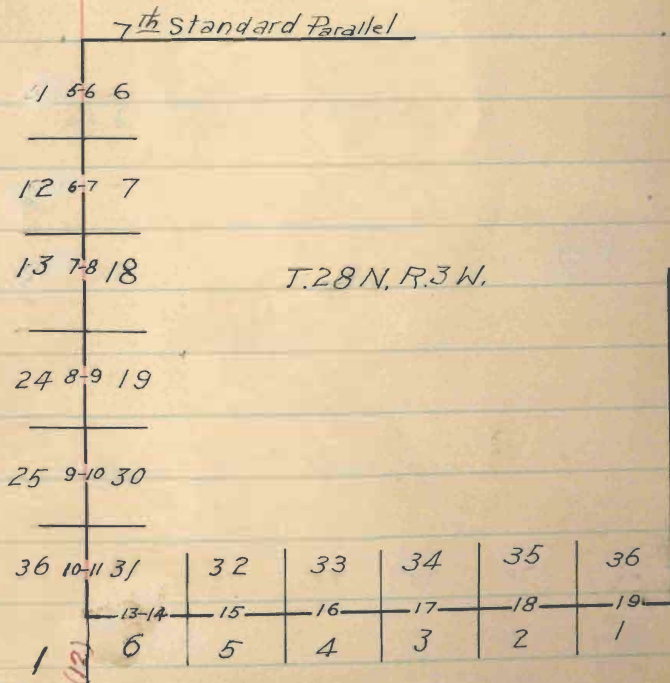 7th Standard Parallel
1 5-6 6
12 6-7 7
13 7-8 18
T.28 N, R.3 W.
24 8-9 19
25 9-10 30
36 10-11 31 32 33 34 35 36
13-14 15 16 17 18 19
1 (12) 6 5 4 3 2 1